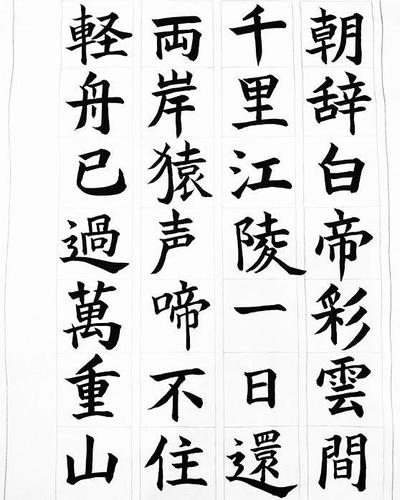 朝辞白帝彩雲間
千里江陵一日還
両岸猿声啼不住
軽舟已過萬重山